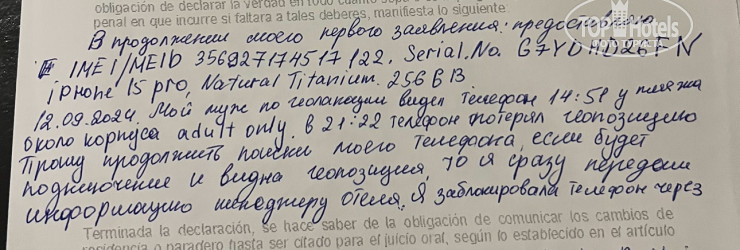 obligación de declarar la verdad en todo cuanto
penal en que incurre si faltara a tales deberes, manifiesta lo siguiente:
TOP Hotels
В продолжении моего первого заявления: предоставляю
IMEI/MEID 356927174517122. Serial.No. G7YDHD26FN
iPHone 15 pro, Natural Titanium. 256 GB
12.09.2024. Мой муж по геолокации видел телефон 14:51 у пляжа
около корпуса adult only. В 21:22 телефон потерял геопозицию
Прошу продолжить поиски моего телефона, если будет
подключение и видна геопозиция, то я сразу передам
информацию менеджеру отеля. Я заблокировала телефон через
Terminada la declaración, se hace saber de la obligación de comunicar los cambios de
residencia o paradero hasta ser citado para el juicio oral, según lo establecido en el artículo